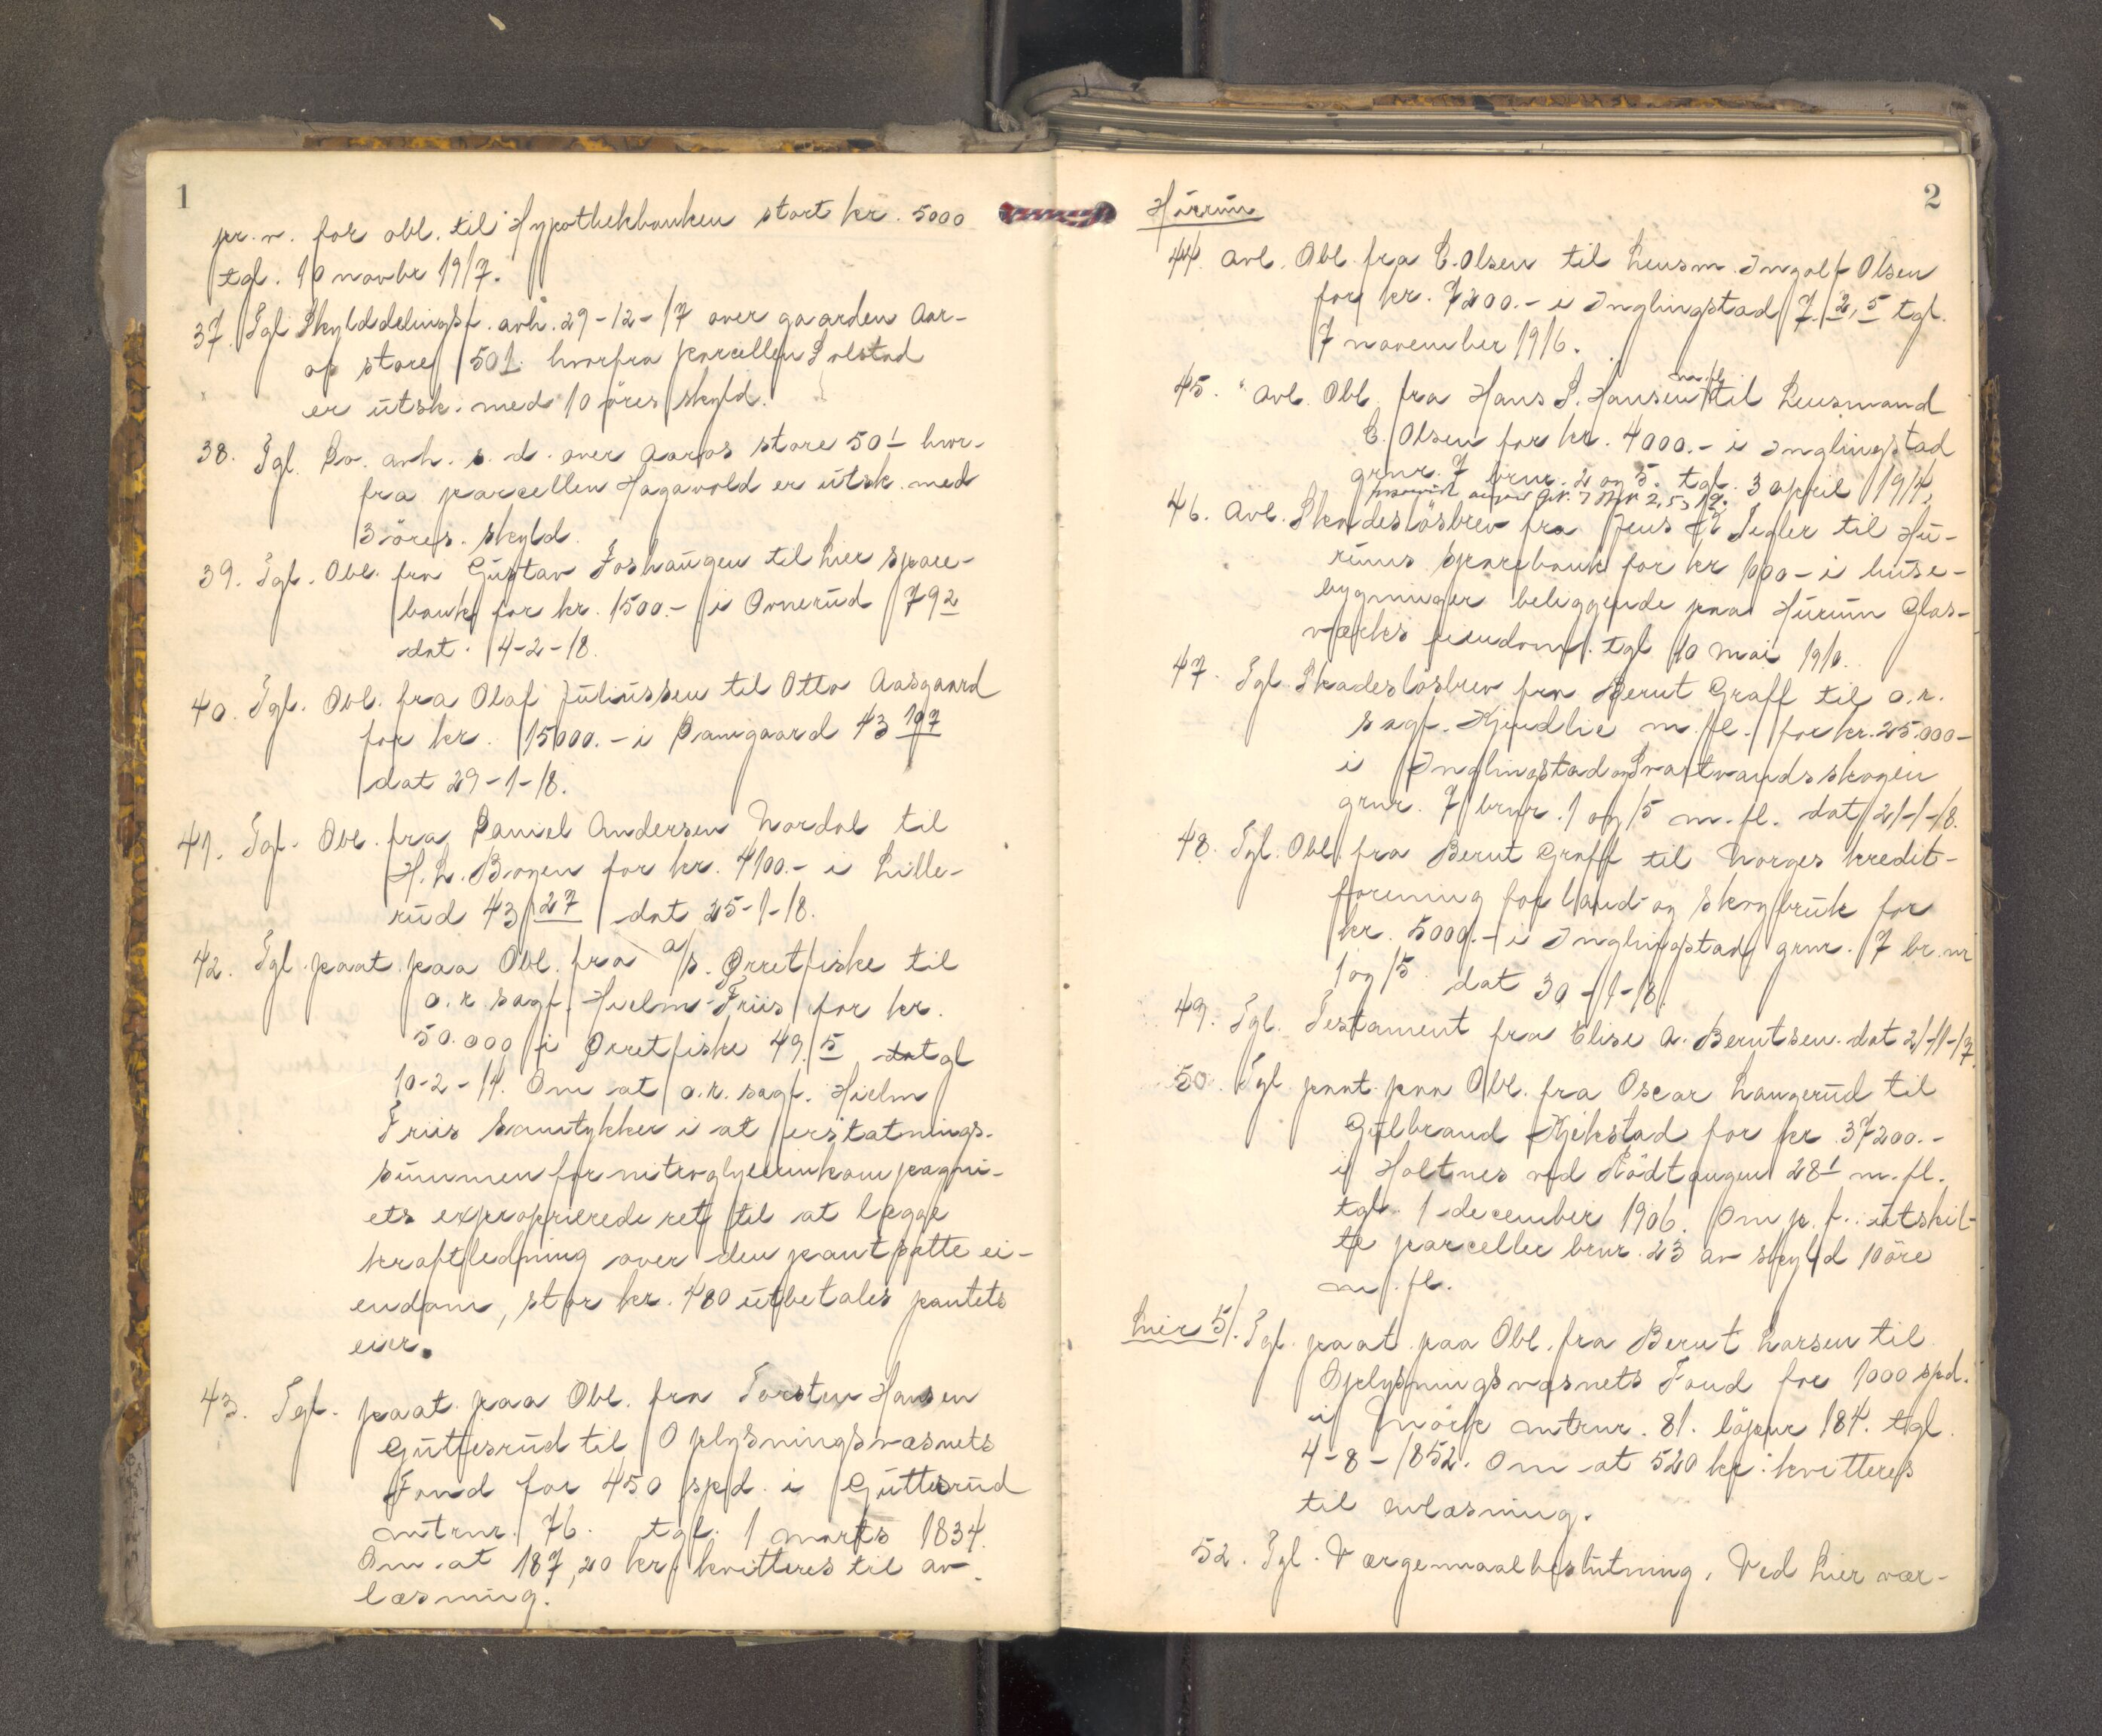 1
pr. v. for obl. til Hypothekbanken stort kr. 5000
tgl. 10 novbr 1917.
37. Tgl. Skylddelingsf. avh. 29-12-17 over gaarden Aar-
os store 50/1 hvorfra parcellen Solstad
er utsk. med 10 öres skyld.
38. Tgl. Do. avh. s. d. over Aaros store 50/1 hvor-
fra parcellen Hagavold er utsk. med
3 öres. skyld.
39. Tgl. Obl. fra Gustav Foshaugen til Lier spare-
bank for kr. 1500.- i Ovnerud 79/2
dat. 4-2-18.
40. Tgl. Obl. fra Olaf Juliussen til Otto Aasgaard
for kr. 15000.- i Damgaard 43/197
dat 29-1-18.
41. Tgl. Obl. fra Daniel Andersen Nordal til
H. L. Bogen for kr. 4100.- i Lille-
rud 43/27 dat 25-1-18.
42. Tgl. paat. paa Obl. fra a/s. Ørretfiske til
o. r. sagf. Hielm-Friis for kr.
50.000 i Ørretfiske 49/5 tgl
10-2-14. Om at o. r. sagf. Hielm
Friis samtykker i at erstatnings-
summen for nitroglycerinkompagni-
ets exproprierede ret til at lægge
kraftledning over den pantsatte ei-
endom, stor kr. 480 utbetales pantets
eier.
43. Tgl. paat. paa Obl. fra Torsten Hansen
Guttesrud til Oplysningsvæsnets
Fond for 450 spd. i Guttesrud
mtrnr. 76. tgl. 1 marts 1834.
Om at 187,20 kr. kvitteres til av-
læsning.
2
Hurum
44. Avl. Obl. fra E. Olsen til Lensm. Ingolf Olsen
for kr. 7200.- i Inglingstad 7/2,5 tgl.
7 november 1916.
45. Avl. Obl. fra Hans S. Hansen m. fl. til Lensmand
E. Olsen for kr. 4000.- i Inglingstad
grnr. 7 brnr. 2 og 5. tgl. 3 april 1914,
gnr. 7 bnr 2, 5, 12.
46. Avl. Skadeslösbrev fra Jens Tegler til Hu-
rums sparebank for kr 1000- i huse-
bygninger beliggende paa Hurum Glas-
værks eiendom. tgl 10 mai 1910.
47. Tgl. Skadeslösbrev fra Bernt Graff til o. r.
sagf. Kjendlie m. fl. for kr. 25.000-
i Inglingstad og Svartvandsskogen
grnr. 7 brnr. 1 og 15 m. fl. dat 21-1-18.
48. Tgl. Obl. fra Bernt Graff til Norges kredit-
forening for land- og skogbruk for
kr. 5000.- i Inglingstad grnr. 7 br. nr
1 og 15. dat 30-1-18.
49. Tgl. Testament fra Elise A. Berntsen. dat 21-11-17.
50. Tgl. paat. paa Obl. fra Oscar Langerud til
Gulbrand Kjekstad for kr 37200.-
i Holtnes ved Rödtangen 28/1 m. fl.
tgl. 1 december 1906. Om p. f. utskil-
te parceller brnr. 23 av skyld 10 öre
m. fl.
Lier 51. Tgl. paat. paa Obl. fra Bernt Larsen til
Oplysningsvæsnets Fond for 1000 spd.
i Mörk mtrnr. 81. löpnr 184. tgl.
4-8-1852. Om at 520 kr. kvitteres
til avlæsning.
52. Tgl. Værgemaalbeslutning. Ved Lier vær-